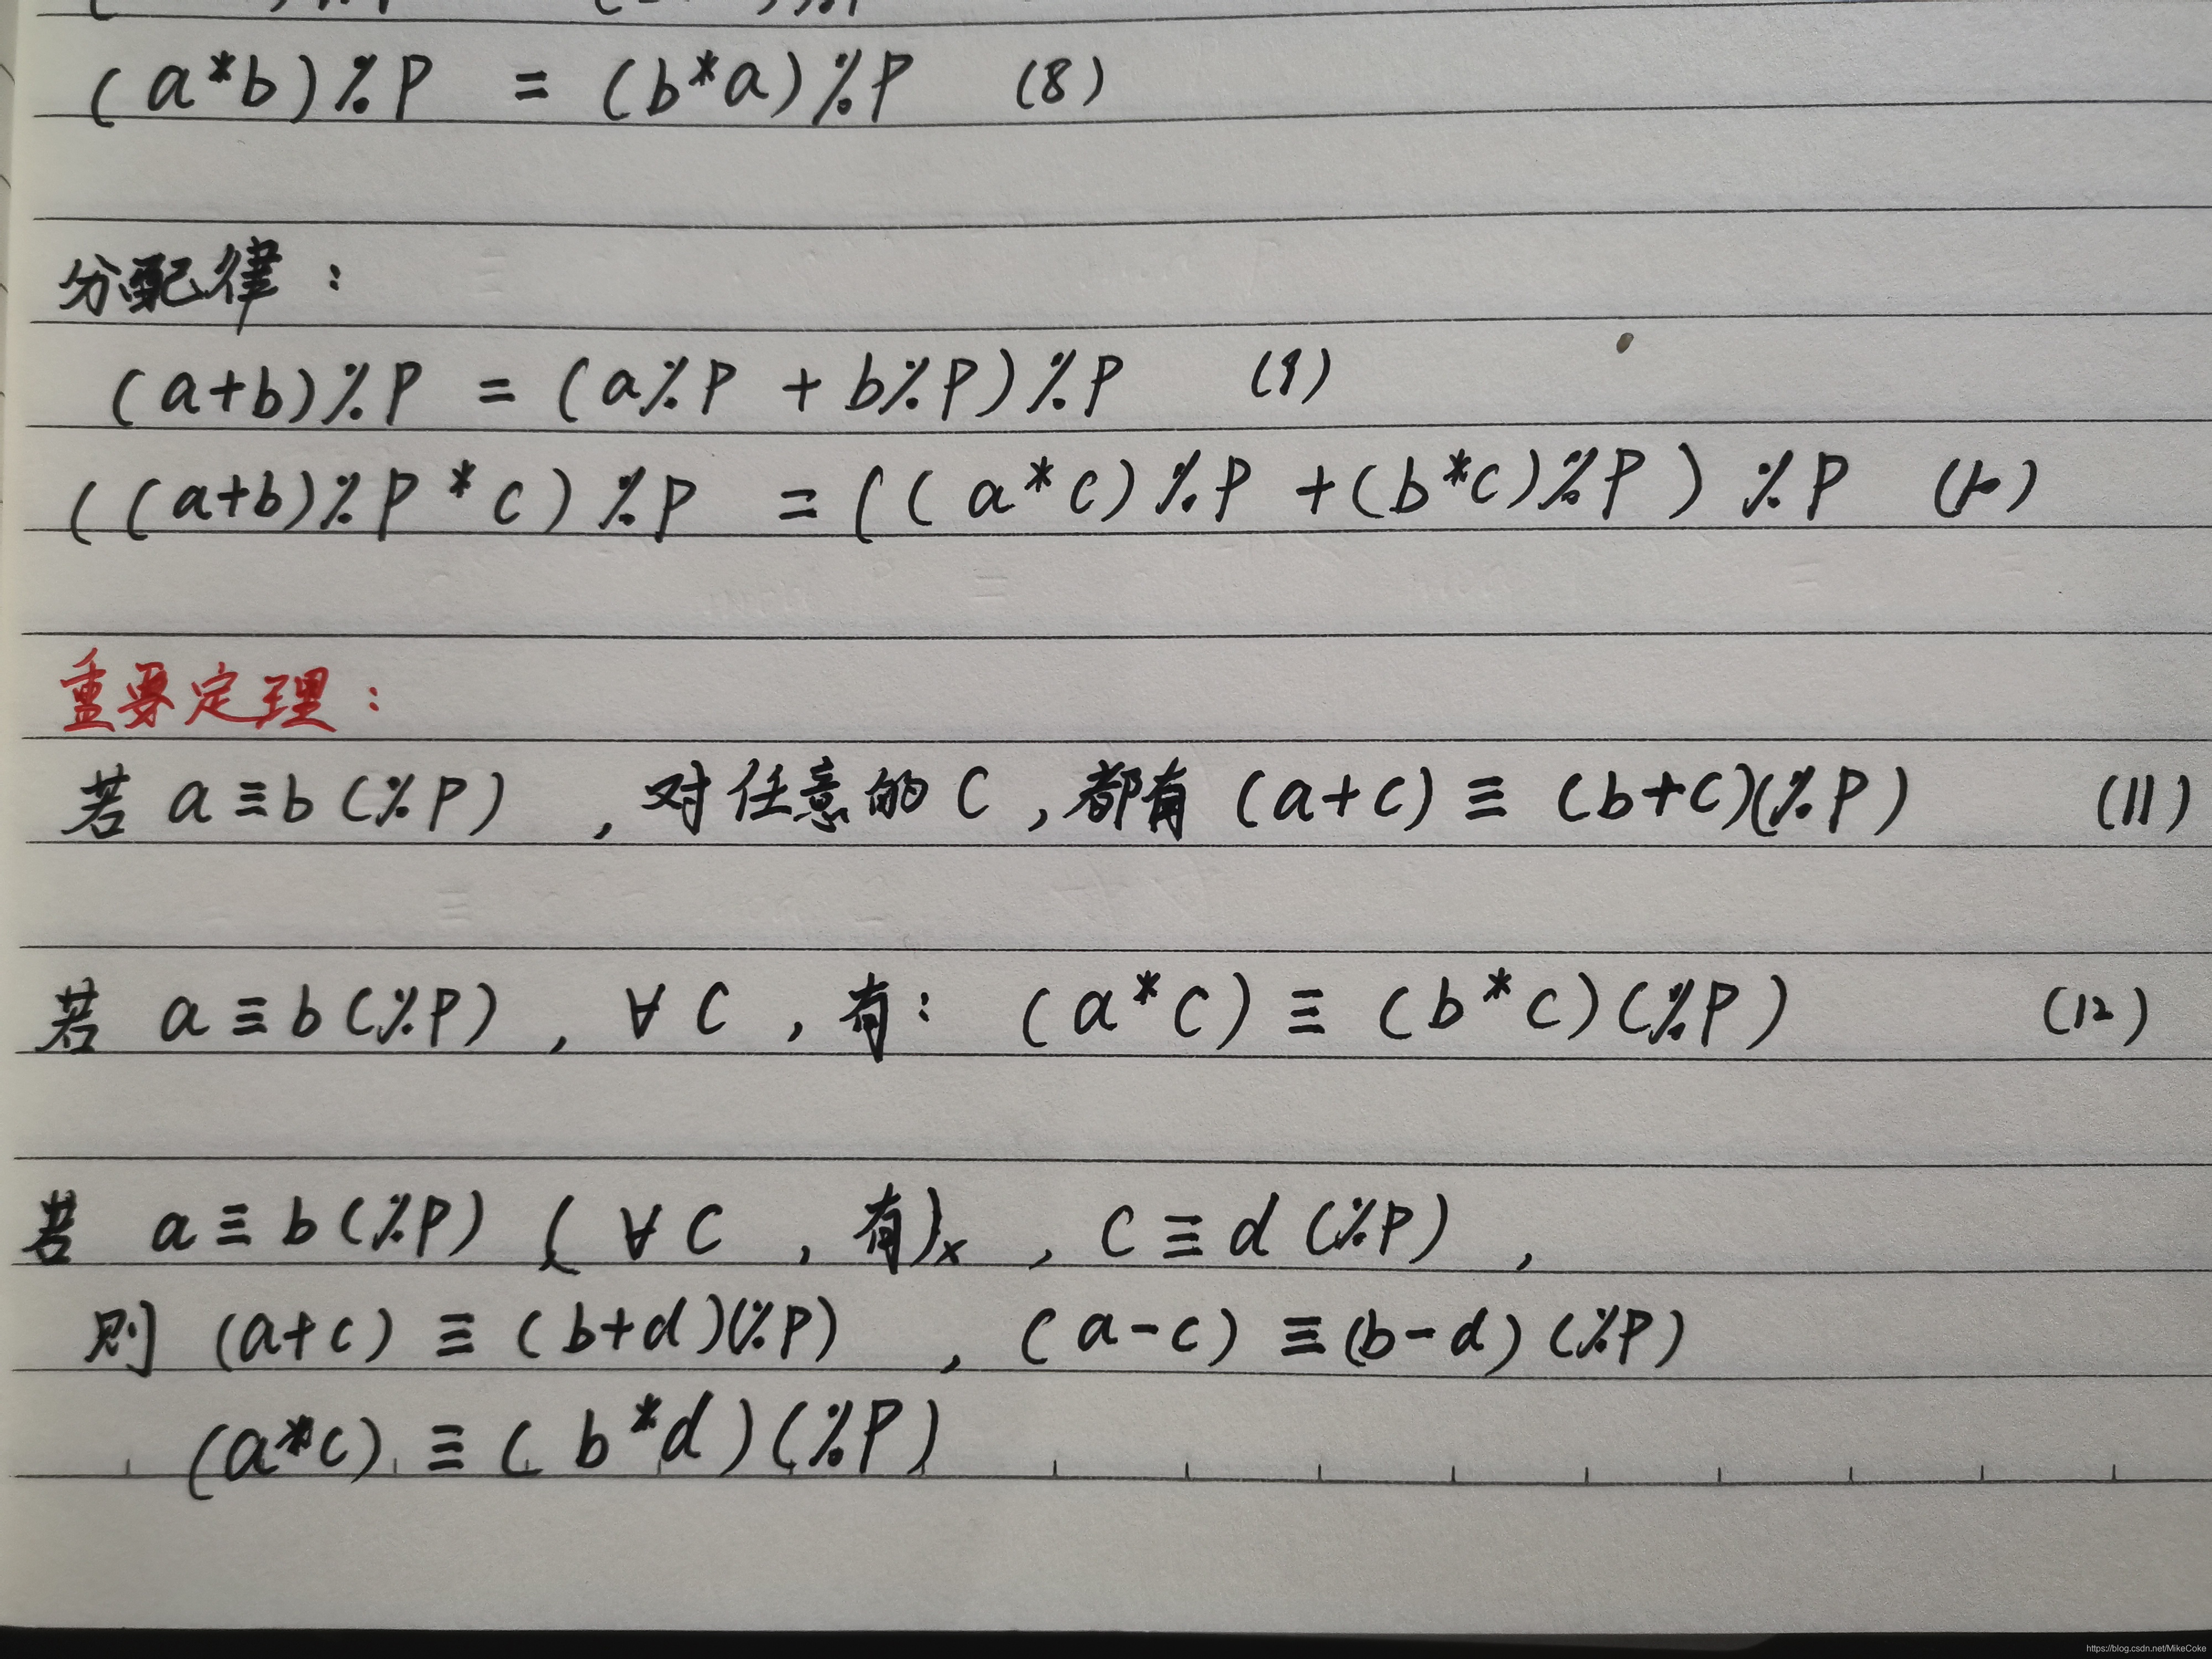 (a*b)%P = (b*a)%P (8)
分配律：
(a+b)%P = (a%P + b%P)%P (9)
((a+b)%P * c)%P = ((a*c)%P + (b*c)%P)%P (10)
重要定理：
若 a≡b(%P) ，对任意的C，都有 (a+c) ≡ (b+c)(%P) (11)
若 a≡b(%P) ，∀C ，有： (a*c) ≡ (b*c)(%P) (12)
若 a≡b(%P) ( ∀C ，有)x ，C≡d(%P) ，
则 (a+c) ≡ (b+d)(%P) ，(a-c) ≡(b-d)(%P)
(a*c) ≡ (b*d)(%P)
https://blog.csdn.net/MikeCoke